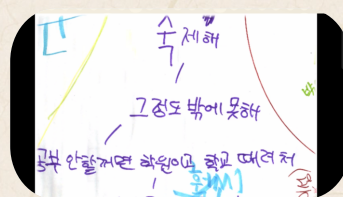 숙제해
그정도 밖에 못해
공부 안할꺼면 학원이고 학교 때려쳐